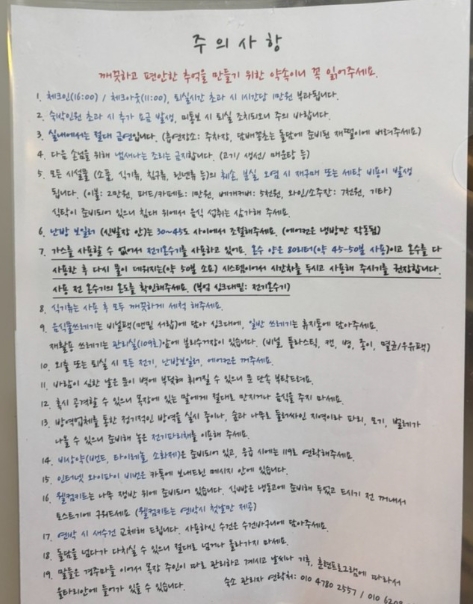 주 의 사 항
깨끗하고 편안한 추억을 만들기 위한 약속이니 꼭 읽어주세요.
1. 체크인(16:00) / 체크아웃(11:00), 퇴실시간 초과 시 1시간당 1만원 부과됩니다.
2. 숙박인원 초과 시 추가 요금 발생, 미통보 시 퇴실 조치되오니 주의 바랍니다.
3. 실내에서는 절대 금연입니다. (흡연장소: 주차장, 담배꽁초는 돌담에 준비된 재떨이에 버려주세요)
4. 다음 손님을 위해 냄새나는 조리는 금지합니다. (고기/ 생선/ 매운탕 등)
5. 모든 시설물 (소품, 식기류, 침구류, 린넨류 등)의 훼손, 분실, 오염 시 재구매 또는 세탁 비용이 발생
됩니다. (이불: 2만원, 패드/카페트: 1만원, 베개커버: 5천원, 와인/소주잔: 7천원, 기타)
식탁이 준비되어 있으니 침대 위에서 음식 섭취는 삼가해 주세요.
6. 난방 보일러 (신발장 안)는 30~45도 사이에서 조절해주세요. (에어컨은 냉방만 작동됨)
7. 가스를 사용할 수 없어서 전기온수기를 사용하고 있어요. 온수 양은 80리터(약 45-50분 사용)이고 온수를 다
사용한 후 다시 물이 데워지는(약 50분 소요) 시스템이어서 시간차를 두시고 사용해 주시기를 권장합니다.
사용 전 온수기의 온도를 확인해주세요. (부엌 싱크대밑: 전기온수기)
8. 식기류는 사용 후 모두 깨끗하게 세척 해주세요.
9. 음식물쓰레기는 비닐팩(맨밑 서랍)에 담아 싱크대에, 일반 쓰레기는 휴지통에 담아주세요.
재활용 쓰레기는 관리실(109호)앞에 분리수거장이 있습니다. (비닐, 플라스틱, 캔, 병, 종이, 멸균/우유팩)
10. 외출 또는 퇴실 시 모든 전기, 난방보일러, 에어컨은 꺼주세요.
11. 바람이 심한 날은 문이 벽에 부딪혀 휘어질 수 있으니 문 단속 부탁드려요.
12. 혹시 공격할 수 있으니 목장에 있는 말에게 절대로 만지거나 음식을 주지 마세요.
13. 방역업체를 통한 정기적인 방역을 실시 중이나, 숲과 나무로 둘러싸인 지역이라 파리, 모기, 벌레가
나올 수 있으니 준비해 놓은 전기파리채를 이용해 주세요.
14. 비상약(밴드, 타이레놀, 소화제)은 준비되어 있고, 응급 시에는 119로 연락해주세요.
15. 인터넷 와이파이 비번은 카톡에 보내드린 메시지 안에 있습니다.
16. 웰컴티는 나무 쟁반 위에 준비되어 있습니다. 식빵은 냉동고에 준비해 두었고 드시기 전 꺼내서
토스트기에 구워드세요 (웰컴티는 연박시 첫날만 제공)
17. 연박 시 새수건 교체해 드립니다. 사용하신 수건은 수건바구니에 담아주세요.
18. 돌담을 넘다가 다치실 수 있으니 절대로 넘거나 올라가지 마세요.
19. 말들은 경주마들 이어서 목장 주인이 따로 관리하고 계시고 날씨나 기후, 훈련프로그램에 따라서
울타리안에 들어가 있을 수 있습니다.
숙소 관리자 연락처: 010 4780 2557 / 010